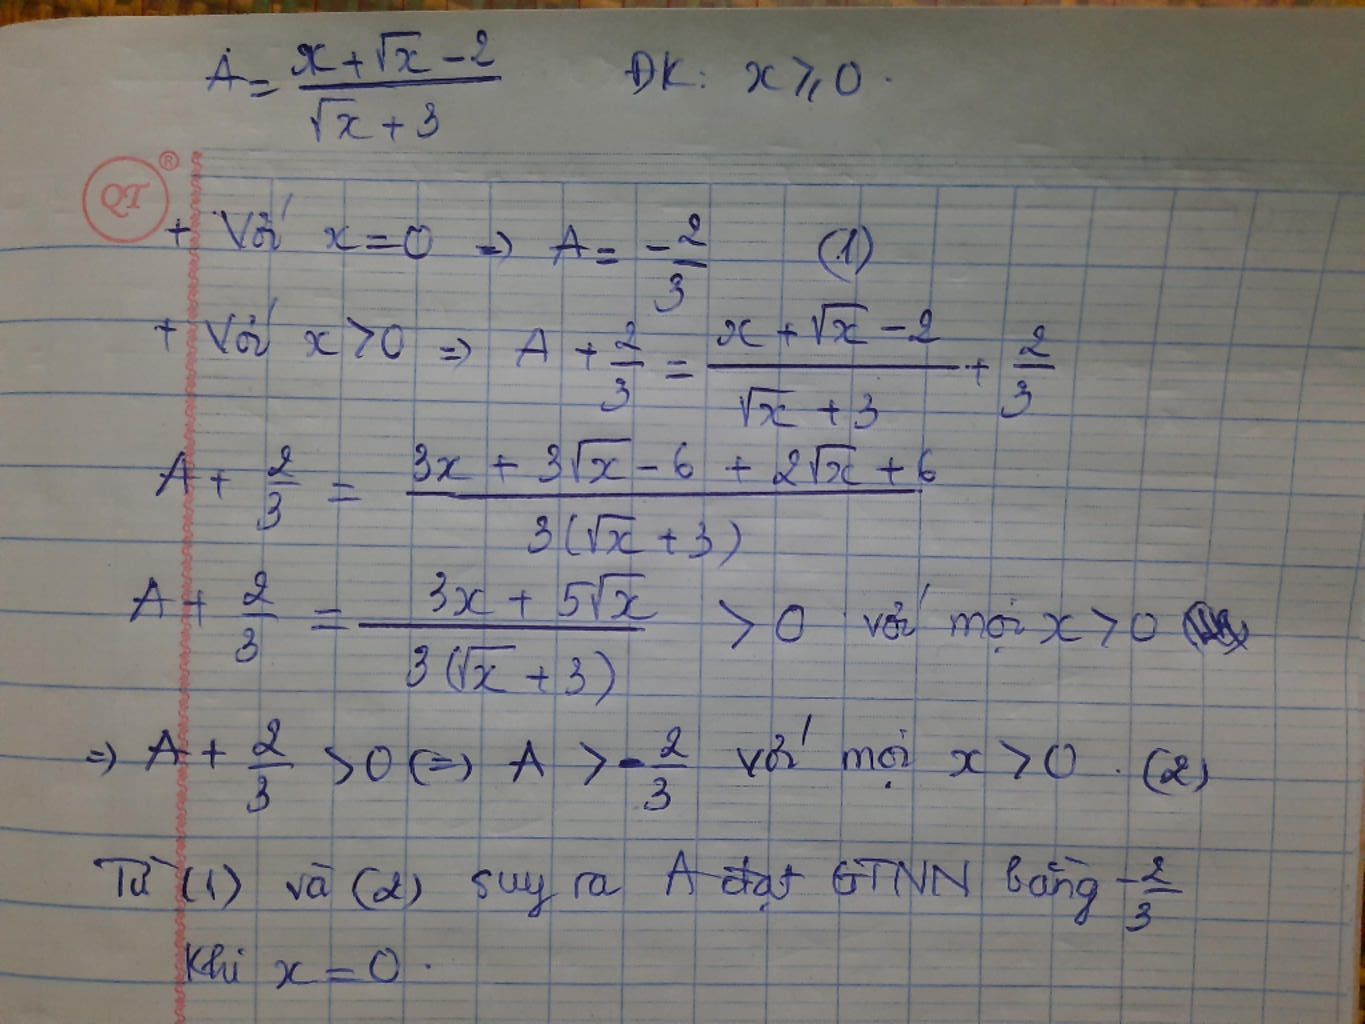 A = (x + √x - 2) / (√x + 3) ĐK: x ⩾ 0.
QT ®
+ Với x = 0 => A = -2/3 (1)
+ Với x > 0 => A + 2/3 = (x + √x - 2) / (√x + 3) + 2/3
A + 2/3 = (3x + 3√x - 6 + 2√x + 6) / (3(√x + 3))
A + 2/3 = (3x + 5√x) / (3(√x + 3)) > 0 với mọi x > 0
=> A + 2/3 > 0 (=) A > -2/3 với mọi x > 0. (2)
Từ (1) và (2) suy ra A đạt GTNN bằng -2/3
Khi x = 0.